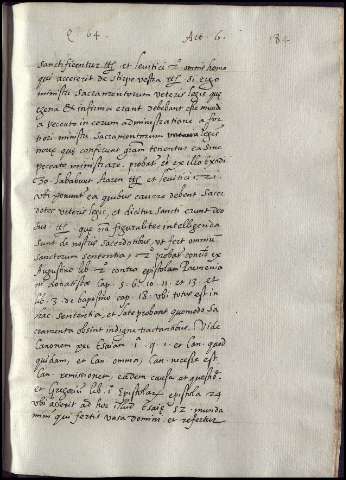 Q 64. Act. 6. 184
sanctificentur etc. et levitici 2. omnis homo
qui accesserit de stirpe vestra etc. si ergo
ministri Sacramentorum veteris legis que
egena & infirma erant debebant esse mundi
a peccato in eorum administratione a forti
ori ministri Sacramentorum legis
nove que conficiunt gratiam tenentur ea sine
peccato ministrare. probatur et ex illo Exodi
30. lababunt Aaron etc. et levitici
ubi ponuntur a quibus cavere debent Sacer
dotes veteris legis, et dicitur sancti erunt deo
suo. etc. que omnia figuraliter intelligenda
sunt de nostris Sacerdotibus, ut fert omnium
sanctorum sententia, 2º probat conclusio ex
Augustino lib. 2 contra epistolam Parmenia
ni donatistae cap. 5. 6. 10. 11. et 13. et
lib. 3. de baptismo cap. 18. ubi totus est in
hac sententia, et late probat quomodo Sa
cramenta obsint indigne tractantibus. Vide
Canonem per Esaiam 1. q. 1. et Can. quod
quidam, et Can. omnia, Can. necesse est.
Can. remissionem, eadem causa et quest.
et Gregorium lib. 1 Epistolar. epistola 24
ubi asserit ad hoc illud Esaiae 52. munda
mini qui fertis vasa domini. et refertur